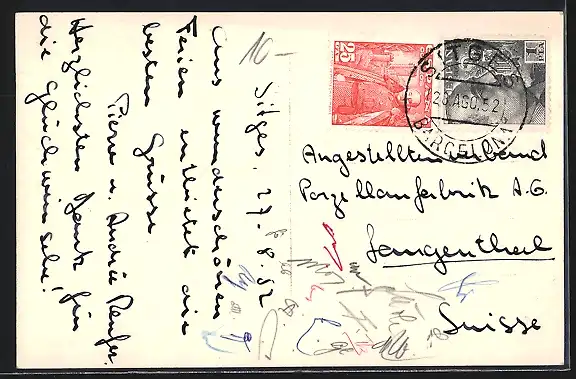 10-
Sitges, 27.8.52
Aus wunderschönen
Ferien entbietet die
besten Grüsse
Pierre u. Andrée
Herzlichsten Dank für
die Glückwünsche!
25
SITGES
28 AGO. 52
BARCELONA
Angestelltenverband
Porzellanfabrik A.G.
Langenthal
Suisse